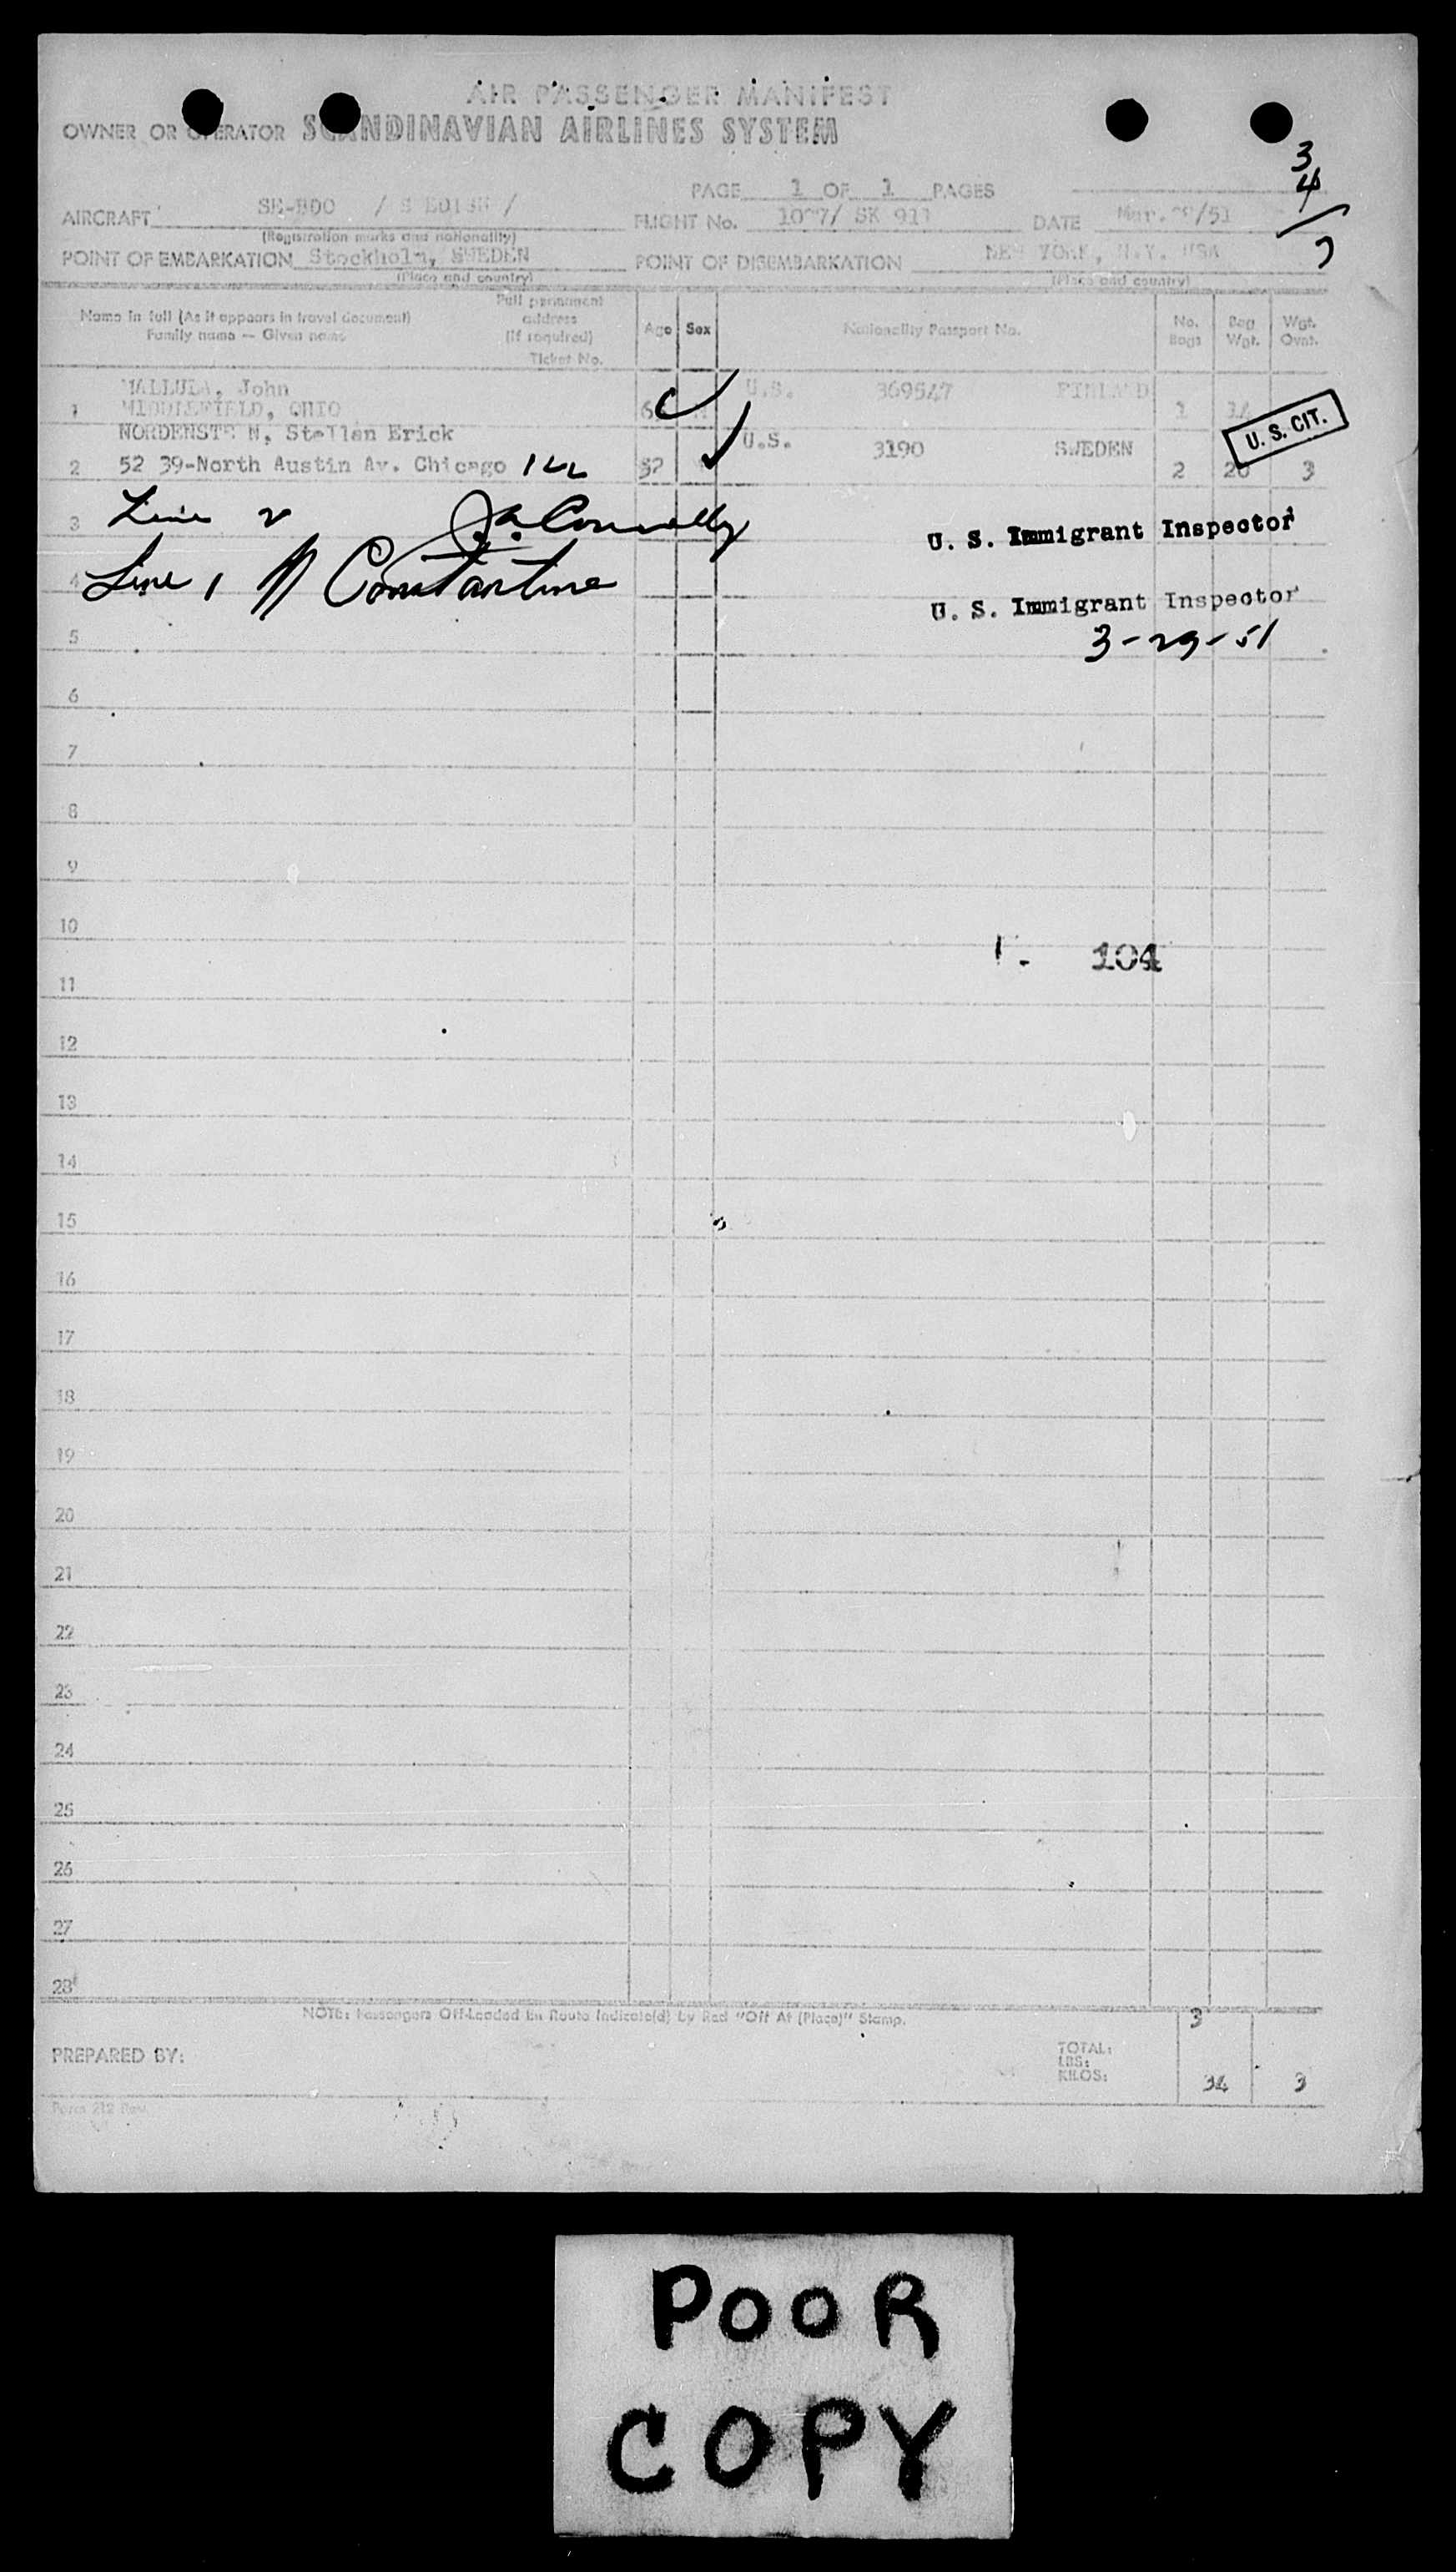 AIR PASSENGER MANIFEST
OWNER OR OPERATOR SCANDINAVIAN AIRLINES SYSTEM
3
4
7
PAGE 1 OF 1 PAGES
AIRCRAFT FLIGHT No. SK DATE Mar. /51
(Registration marks and nationality)
POINT OF EMBARKATION Stockholm, SWEDEN POINT OF DISEMBARKATION NEW YORK, N.Y. USA
(Place and country) (Place and country)
Name in full (As it appears in travel document)
Family name — Given name
Full permanent
address
(If required)
Ticket No.
Age Sex Nationality Passport No. No. Bags Bag Wgt. Wgt. Ovnt.
John U.S. 369547 FINLAND
1 MIDDLEFIELD, OHIO 1
U. S. CIT.
Erick U.S. 3190 SWEDEN
2 52 39-North Austin Av. Chicago ILL 2 20 3
3 Line 2 Connelly U. S. Immigrant Inspector
4 Line 1 Constantine U. S. Immigrant Inspector
3-29-51
5
6
7
8
9
10
104
11
12
13
14
15
16
17
18
19
20
21
22
23
24
25
26
27
28
NOTE: Passengers Off-Loaded En Route Indicate(d) by Red "Off At (Place)" Stamp. 3
PREPARED BY: TOTAL:
LBS:
KILOS: 34 3
Form 212 Rev.
POOR
COPY